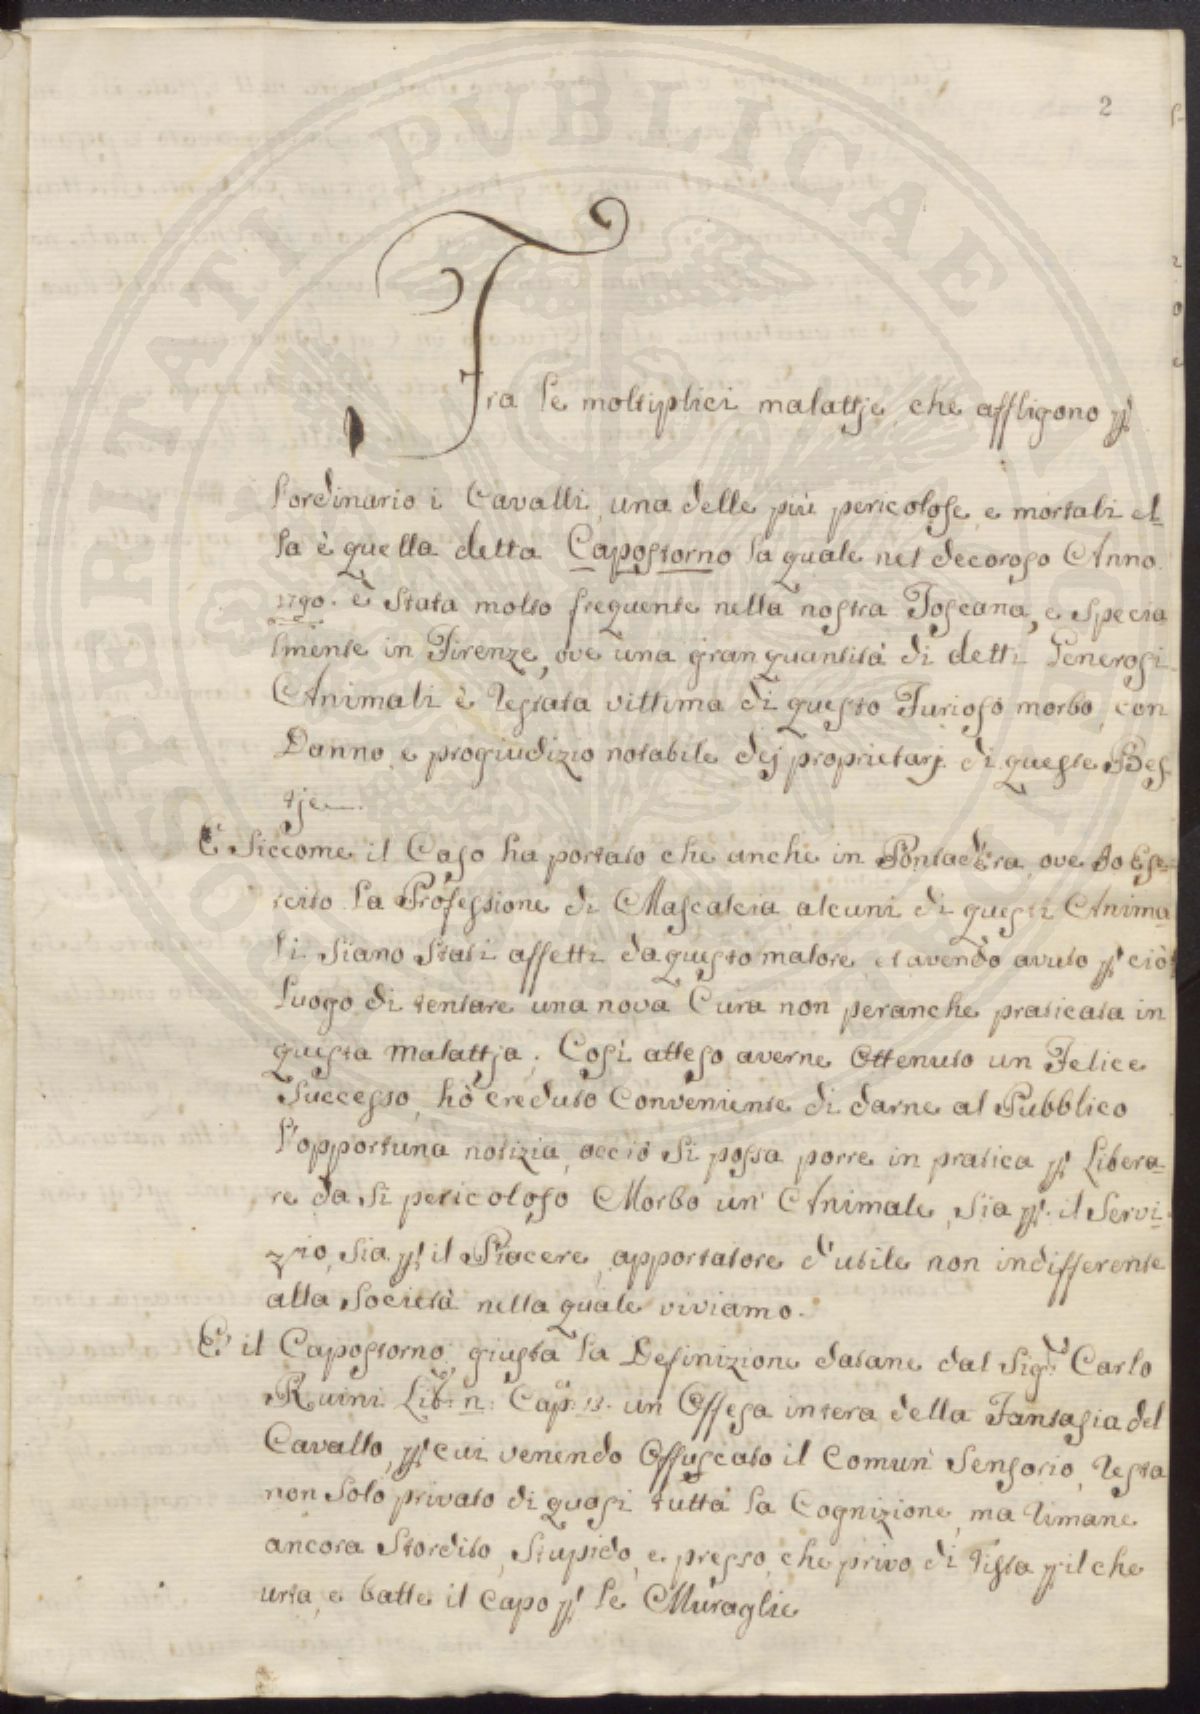 2
Tra le moltiplici malattje, che affligono p
l'ordinario i Cavalli, una delle più pericolose, e mortali el-
la è quella detta Capostorno la quale nel decoroso Anno
1790. è Stata molto frequente nella nostra Toscana, e Specia
lmente in Firenze, ove una gran quantità di detti Generosi
Animali è restata vittima di questo Furioso morbo, con
Danno, e progiudizio notabile dej proprietarj di queste Bes-
tje.
E Siccome il Caso ha portato che anche in Pontadera, ove Io Ese-
rcito la Professione di Mascalcia, alcuni di questi Anima-
li Siano Stati affetti da questo malore, et avendo avuto p ciò
luogo di tentare una nova Cura non peranche praticata in
questa malattja; Così atteso averne Ottenuto un Felice
Successo, hò creduto Conveniente di darne al Pubblico
l'opportuna notizia, acciò Si possa porre in pratica p Libera-
re da Si pericoloso Morbo un' Animale, Sia p il Servi-
zio, Sia p il Piacere, apportatore d'utile non indifferente
alla Società nella quale viviamo.
E' il Capostorno, giusta la Definizione datane dal Sigr. Carlo
Ruini Lib. n. Cap. 13. un Offesa intera della Fantasia del
Cavallo, p cui venendo Offuscato il Comun' Sensorio, resta
non Solo privato di quasi tutta la Cognizione, ma rimane
ancora Stordito, Stupido, e presso che privo di Vista p il che
urta, e batte il capo p le Muraglie
SOSPERITATI PUBLICAE